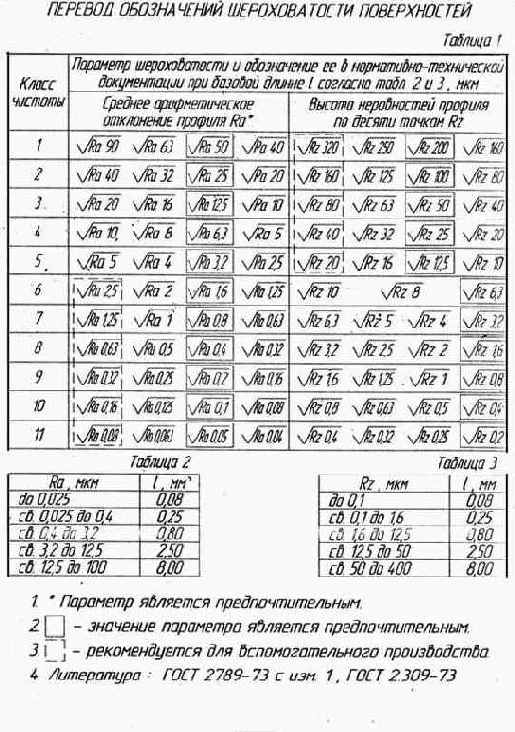 ПЕРЕВОД ОБОЗНАЧЕНИЙ ШЕРОХОВАТОСТИ ПОВЕРХНОСТЕЙ
Таблица 1
Класс чистоты
Параметр шероховатости и обозначение ее в нормативно-технической
документации при базовой длинне l согласно табл 2 и 3, мкм
Среднее арифметическое
отклонение профиля Ra*
Высота неровностей профиля
по десяти точкам Rz
1 √Ra 90 √Ra 63 √Ra 50 √Ra 40 √Rz 320 √Rz 250 √Rz 200 √Rz 160
2 √Ra 40 √Ra 32 √Ra 25 √Ra 20 √Rz 160 √Rz 125 √Rz 100 √Rz 80
3 √Ra 20 √Ra 16 √Ra 12,5 √Ra 10 √Rz 80 √Rz 63 √Rz 50 √Rz 40
4 √Ra 10 √Ra 8 √Ra 6,3 √Ra 5 √Rz 40 √Rz 32 √Rz 25 √Rz 20
5 √Ra 5 √Ra 4 √Ra 3,2 √Ra 2,5 √Rz 20 √Rz 16 √Rz 12,5 √Rz 10
6 √Ra 2,5 √Ra 2 √Ra 1,6 √Ra 1,25 √Rz 10 √Rz 8 √Rz 6,3
7 √Ra 1,25 √Ra 1 √Ra 0,8 √Ra 0,63 √Rz 6,3 √Rz 5 √Rz 4 √Rz 3,2
8 √Ra 0,63 √Ra 0,5 √Ra 0,4 √Ra 0,32 √Rz 3,2 √Rz 2,5 √Rz 2 √Rz 1,6
9 √Ra 0,32 √Ra 0,25 √Ra 0,2 √Ra 0,16 √Rz 1,6 √Rz 1,25 √Rz 1 √Rz 0,8
10 √Ra 0,16 √Ra 0,125 √Ra 0,1 √Ra 0,08 √Rz 0,8 √Rz 0,63 √Rz 0,5 √Rz 0,4
11 √Ra 0,08 √Ra 0,063 √Ra 0,05 √Ra 0,04 √Rz 0,4 √Rz 0,32 √Rz 0,25 √Rz 0,2
Таблица 2
Ra, мкм l, мм
до 0,025 0,08
св. 0,025 до 0,4 0,25
св. 0,4 до 3,2 0,80
св. 3,2 до 12,5 2,50
св. 12,5 до 100 8,00
Таблица 3
Rz, мкм l, мм
до 0,1 0,08
св. 0,1 до 1,6 0,25
св. 1,6 до 12,5 0,80
св. 12,5 до 50 2,50
св. 50 до 400 8,00
1. * Параметр является предпочтительным.
2 - значение параметра является предпочтительным.
3 - рекомендуется для вспомогательного производства
4 Литература : ГОСТ 2789-73 с изм. 1, ГОСТ 2.309-73